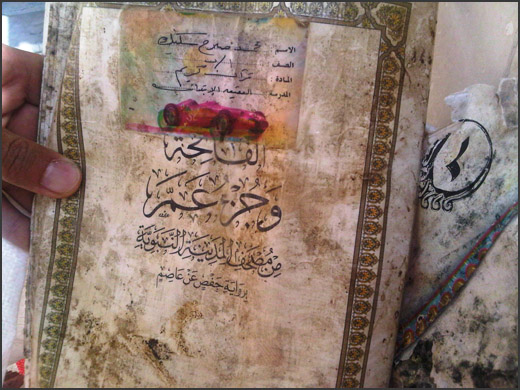 الاسم: محمد صلاح
الصف: الاول
المادة: قرآن كريم
المدرسة: الابتدائية
الفَاتِحَة
وَجُزْءُ عَمَّ
مِنْ مُصْحَفِ المَدِينَةِ النَّبَوِيَّةِ
بِرِوَايَةِ حَفْصٍ عَنْ عَاصِمٍ